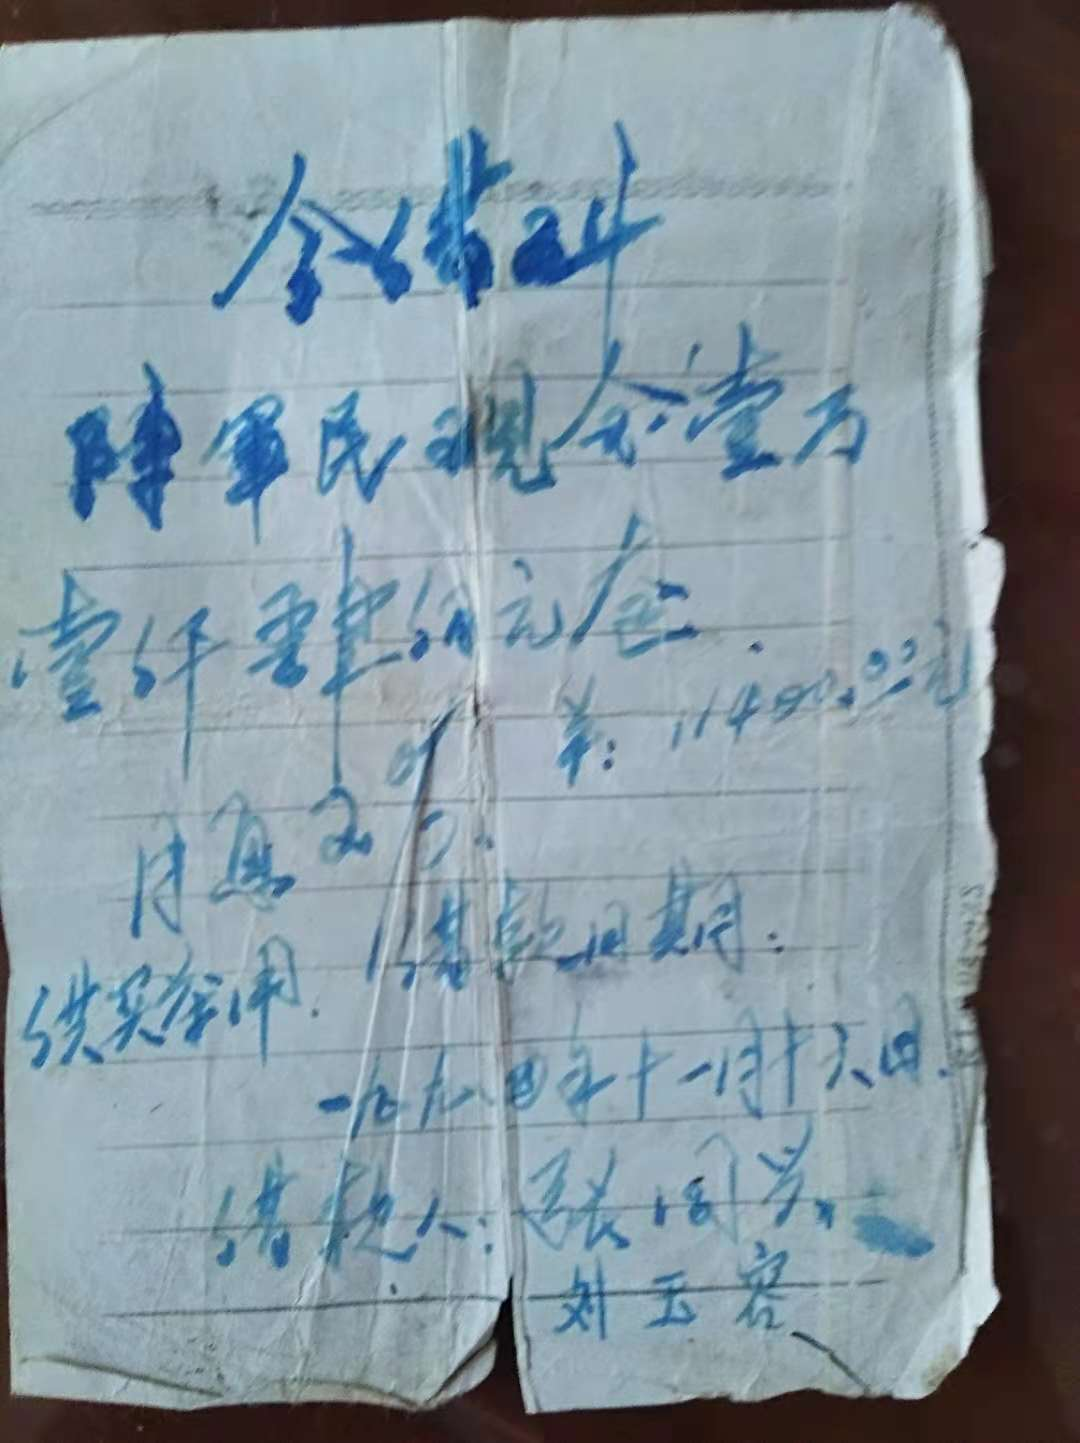 今借到
陈軍民现金壹万
壹仟零肆佰元整.
关: 11400.00元
月息2分.
借款日期:
供买房用.
一九九四年十一月十六日.
借款人: 张同兴
刘玉容